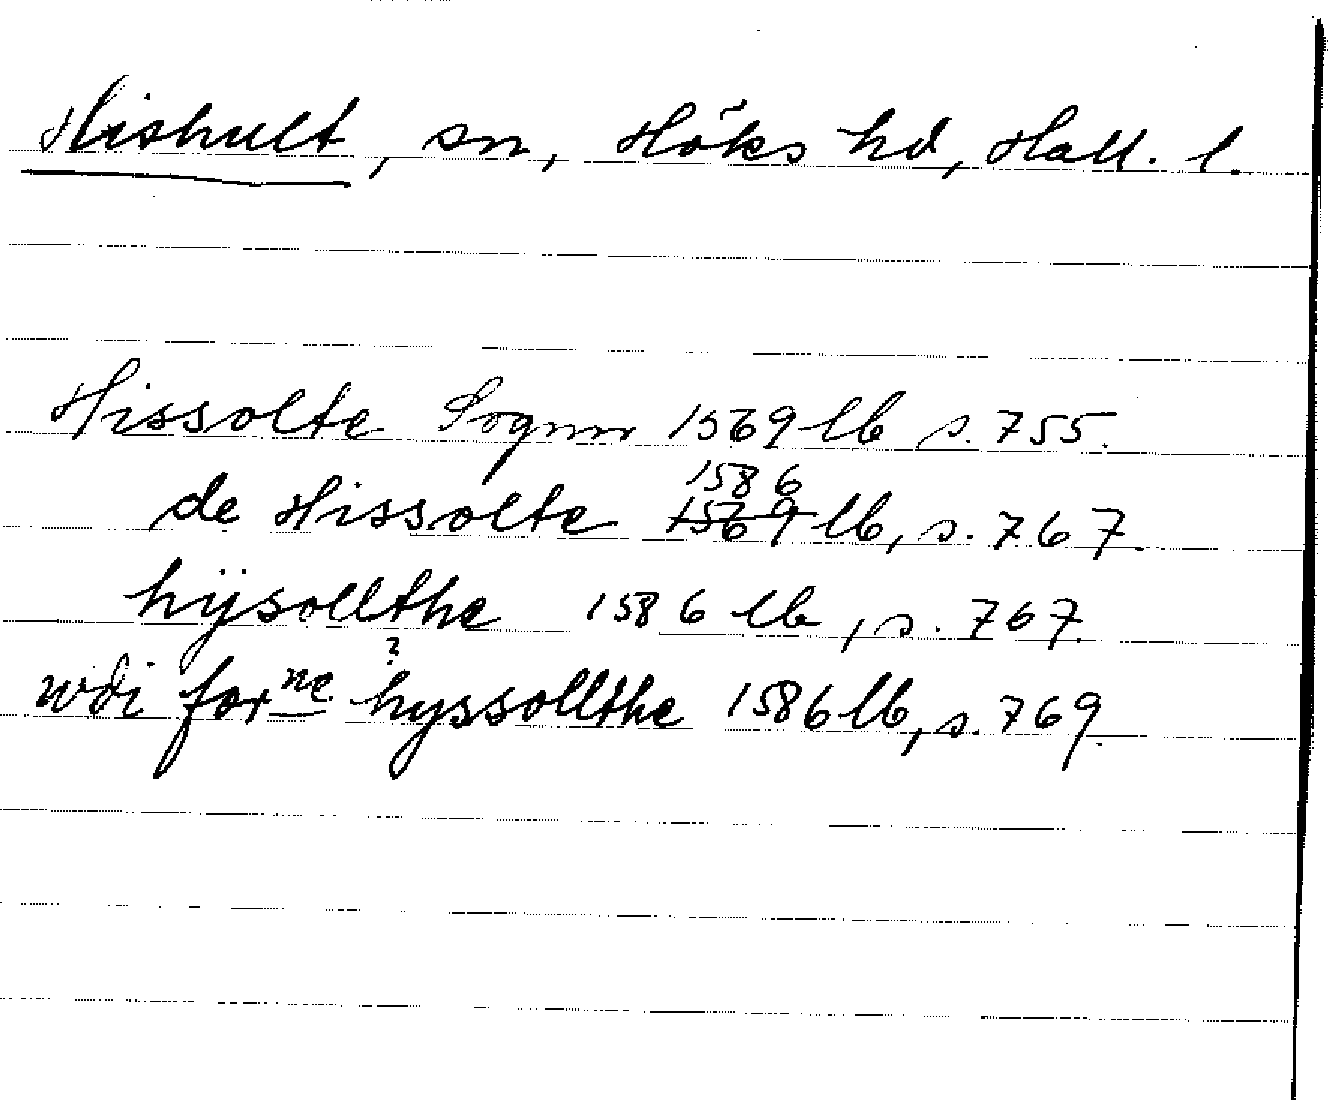 Hishult, sn, Höks hd, Hall. l.
Hissolte Sognn 1569 lb s. 755.
1586
de Hissolte 1569 lb, s. 767.
hÿsollthe 1586 lb, s. 767.
?
wdi forne hyssollthe 1586 lb, s. 769.